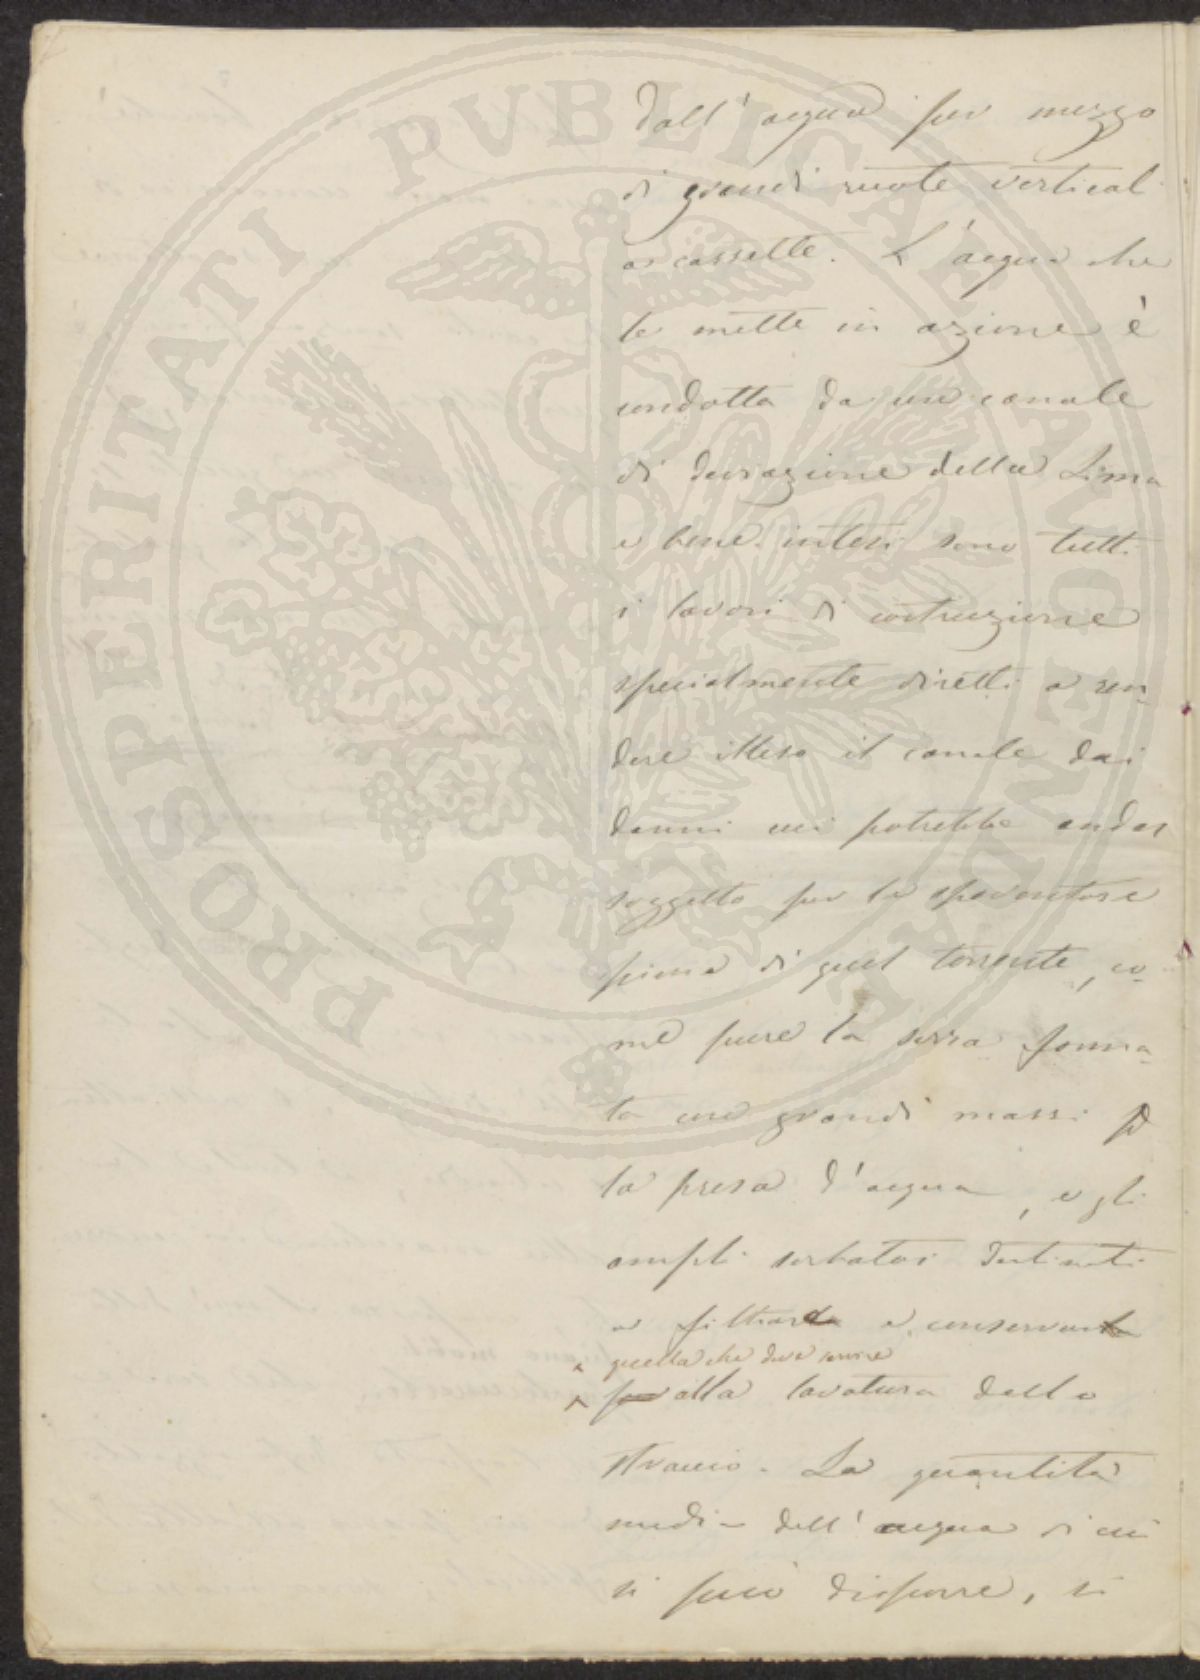 dall'acqua per mezzo
di grandi ruote verticali
a cassette. L'acqua che
le mette in azione è
condotta da un canale
di derivazione della Lima
e bene intesi sono tutti
i lavori di costruzione
specialmente diretti a ren-
dere illeso il canale dai
danni cui potrebbe andar
soggetto per le spaventose
piene di quel torrente, co-
me pure la serra forma-
ta con grandi massi p
la presa d'acqua, e gli
ampli serbatoi destinati
a filtrare e conservar
quella che deve servire
per alla lavatura dello
straccio. La quantità
media dell'acqua di cui
si può disporre, si
PROSPERITATI PVBLICAE AVGENDAE